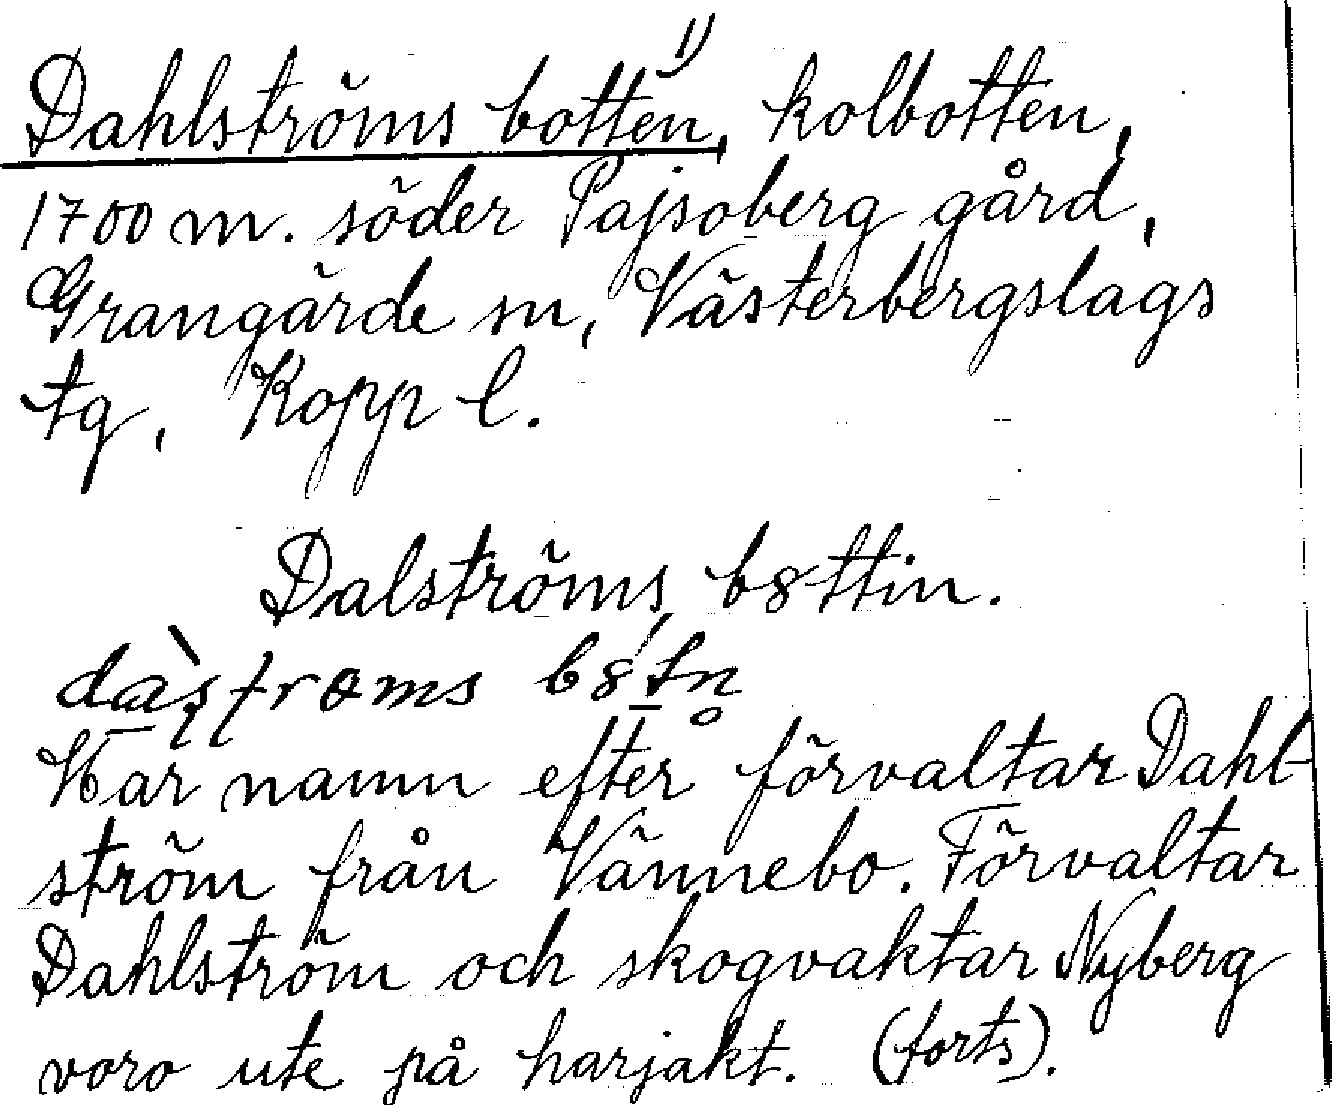 Dahlströms botten, ¹⁾ kolbotten,
1700 m. söder Pajsoberg gård,
Grangärde sn, Västerbergslags
tg, Kopp l.
Dalströms b8ttin.
Har namn efter förvaltar Dahl-
ström från Vännebo. Förvaltar
Dahlström och skogvaktar Nyberg
voro ute på harjakt. (forts).